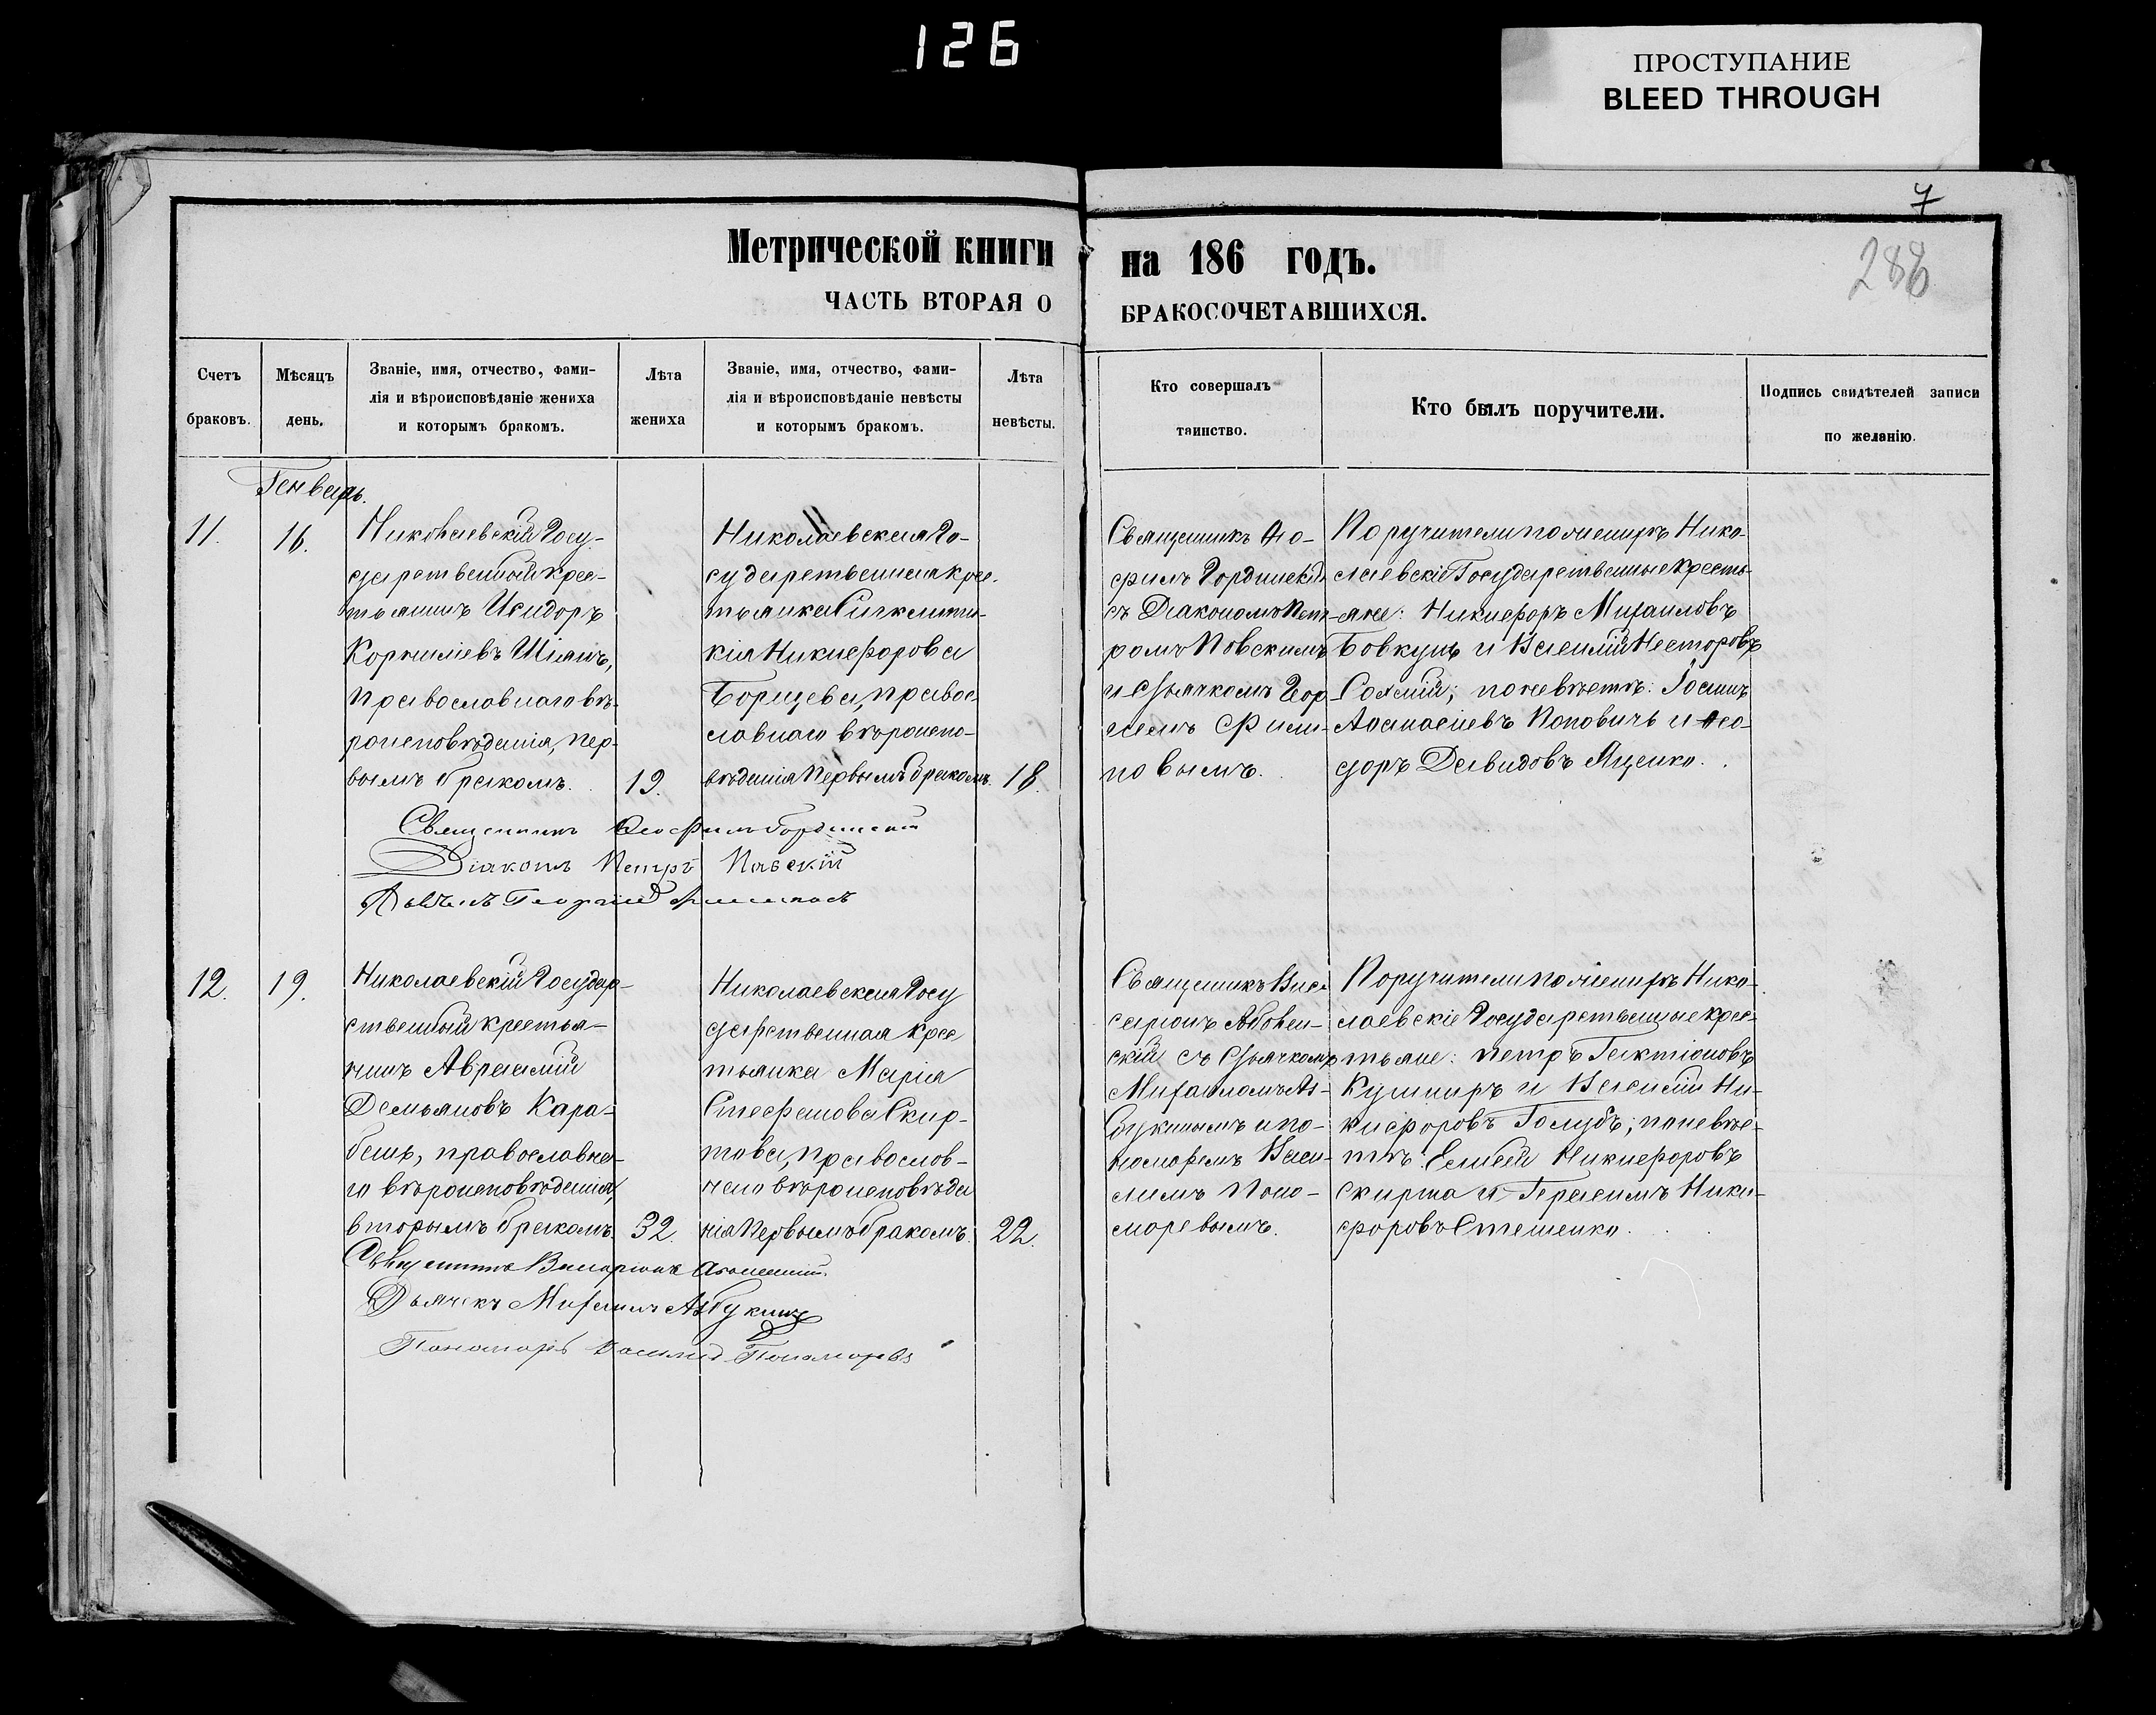 126
ПРОСТУПАНИЕ
BLEED THROUGH
7
288
Метрической книги на 186 годъ.
ЧАСТЬ ВТОРАЯ О БРАКОСОЧЕТАВШИХСЯ.
Счетъ
браковъ.
Мѣсяцъ
день.
Званіе, имя, отчество, фами-
лія и вѣроисповѣданіе жениха
и которымъ бракомъ.
Лѣта
жениха
Званіе, имя, отчество, фами-
лія и вѣроисповѣданіе невѣсты
и которымъ бракомъ.
Лѣта
невѣсты.
Кто совершалъ
таинство.
Кто былъ поручители.
Подпись свидѣтелей записи
по желанію.
Генварь.
11.
16.
Николаевскій Госу-
дарственный крес-
тьянинъ Исидоръ
Корниліевъ Шіянъ,
православнаго вѣ-
роисповѣданія, пер-
вымъ бракомъ.
19.
Николаевская Го-
сударственная крес-
тьянка
кія Никифорова
Борщева, правос-
лавнаго вѣроиспо-
вѣданія первымъ бракомъ.
18.
Священникъ Ѳео-
филъ Гординскій
съ Діакономъ Пет-
ромъ Повскимъ
и дьячкомъ Геор-
гіемъ Фили-
повымъ.
Поручители по женихѣ Нико-
лаевскіе Государственные кресть-
яне: Никифоръ Михаиловъ
Бовкунъ и Василій Несторовъ
по невѣстѣ: Іоаннъ
Аѳанасіевъ Поповичь и Ѳео-
доръ Давидовъ Яценко.
Священникъ Ѳеофилъ Гординскій
Діаконъ Петръ Павскій
Дьячекъ Георгій Филиповъ
12.
19.
Николаевскій Государ-
ственный крестья-
нинъ Авраамій
Демьяновъ Кара-
бешь, православна-
го вѣроисповѣданія,
вторымъ бракомъ.
32.
Николаевская Госу
дарственная крес
тьянка Марія
Стефанова Скир-
това, православ-
наго вѣроисповѣда
нія первымъ бракомъ.
22.
Священникъ Висс
саріонъ
скій съ дьячкомъ
Михаиломъ Аз-
букинымъ и по-
номаремъ Васи-
лимъ Поно-
маревымъ.
Поручители по женихѣ Нико-
лаевскіе Государственные крес-
тьяне: Петръ Галктіоновъ
Кушниръ и Василій Ни-
кифоровъ Голубъ; по невѣс-
тѣ: Елисей Никифоровъ
Скирта и Герасимъ Ники-
форовъ Стешенко.
Священникъ Виссаріонъ
Дьячекъ Михаилъ Азбукинъ
Пономарь Василій Пономаревъ